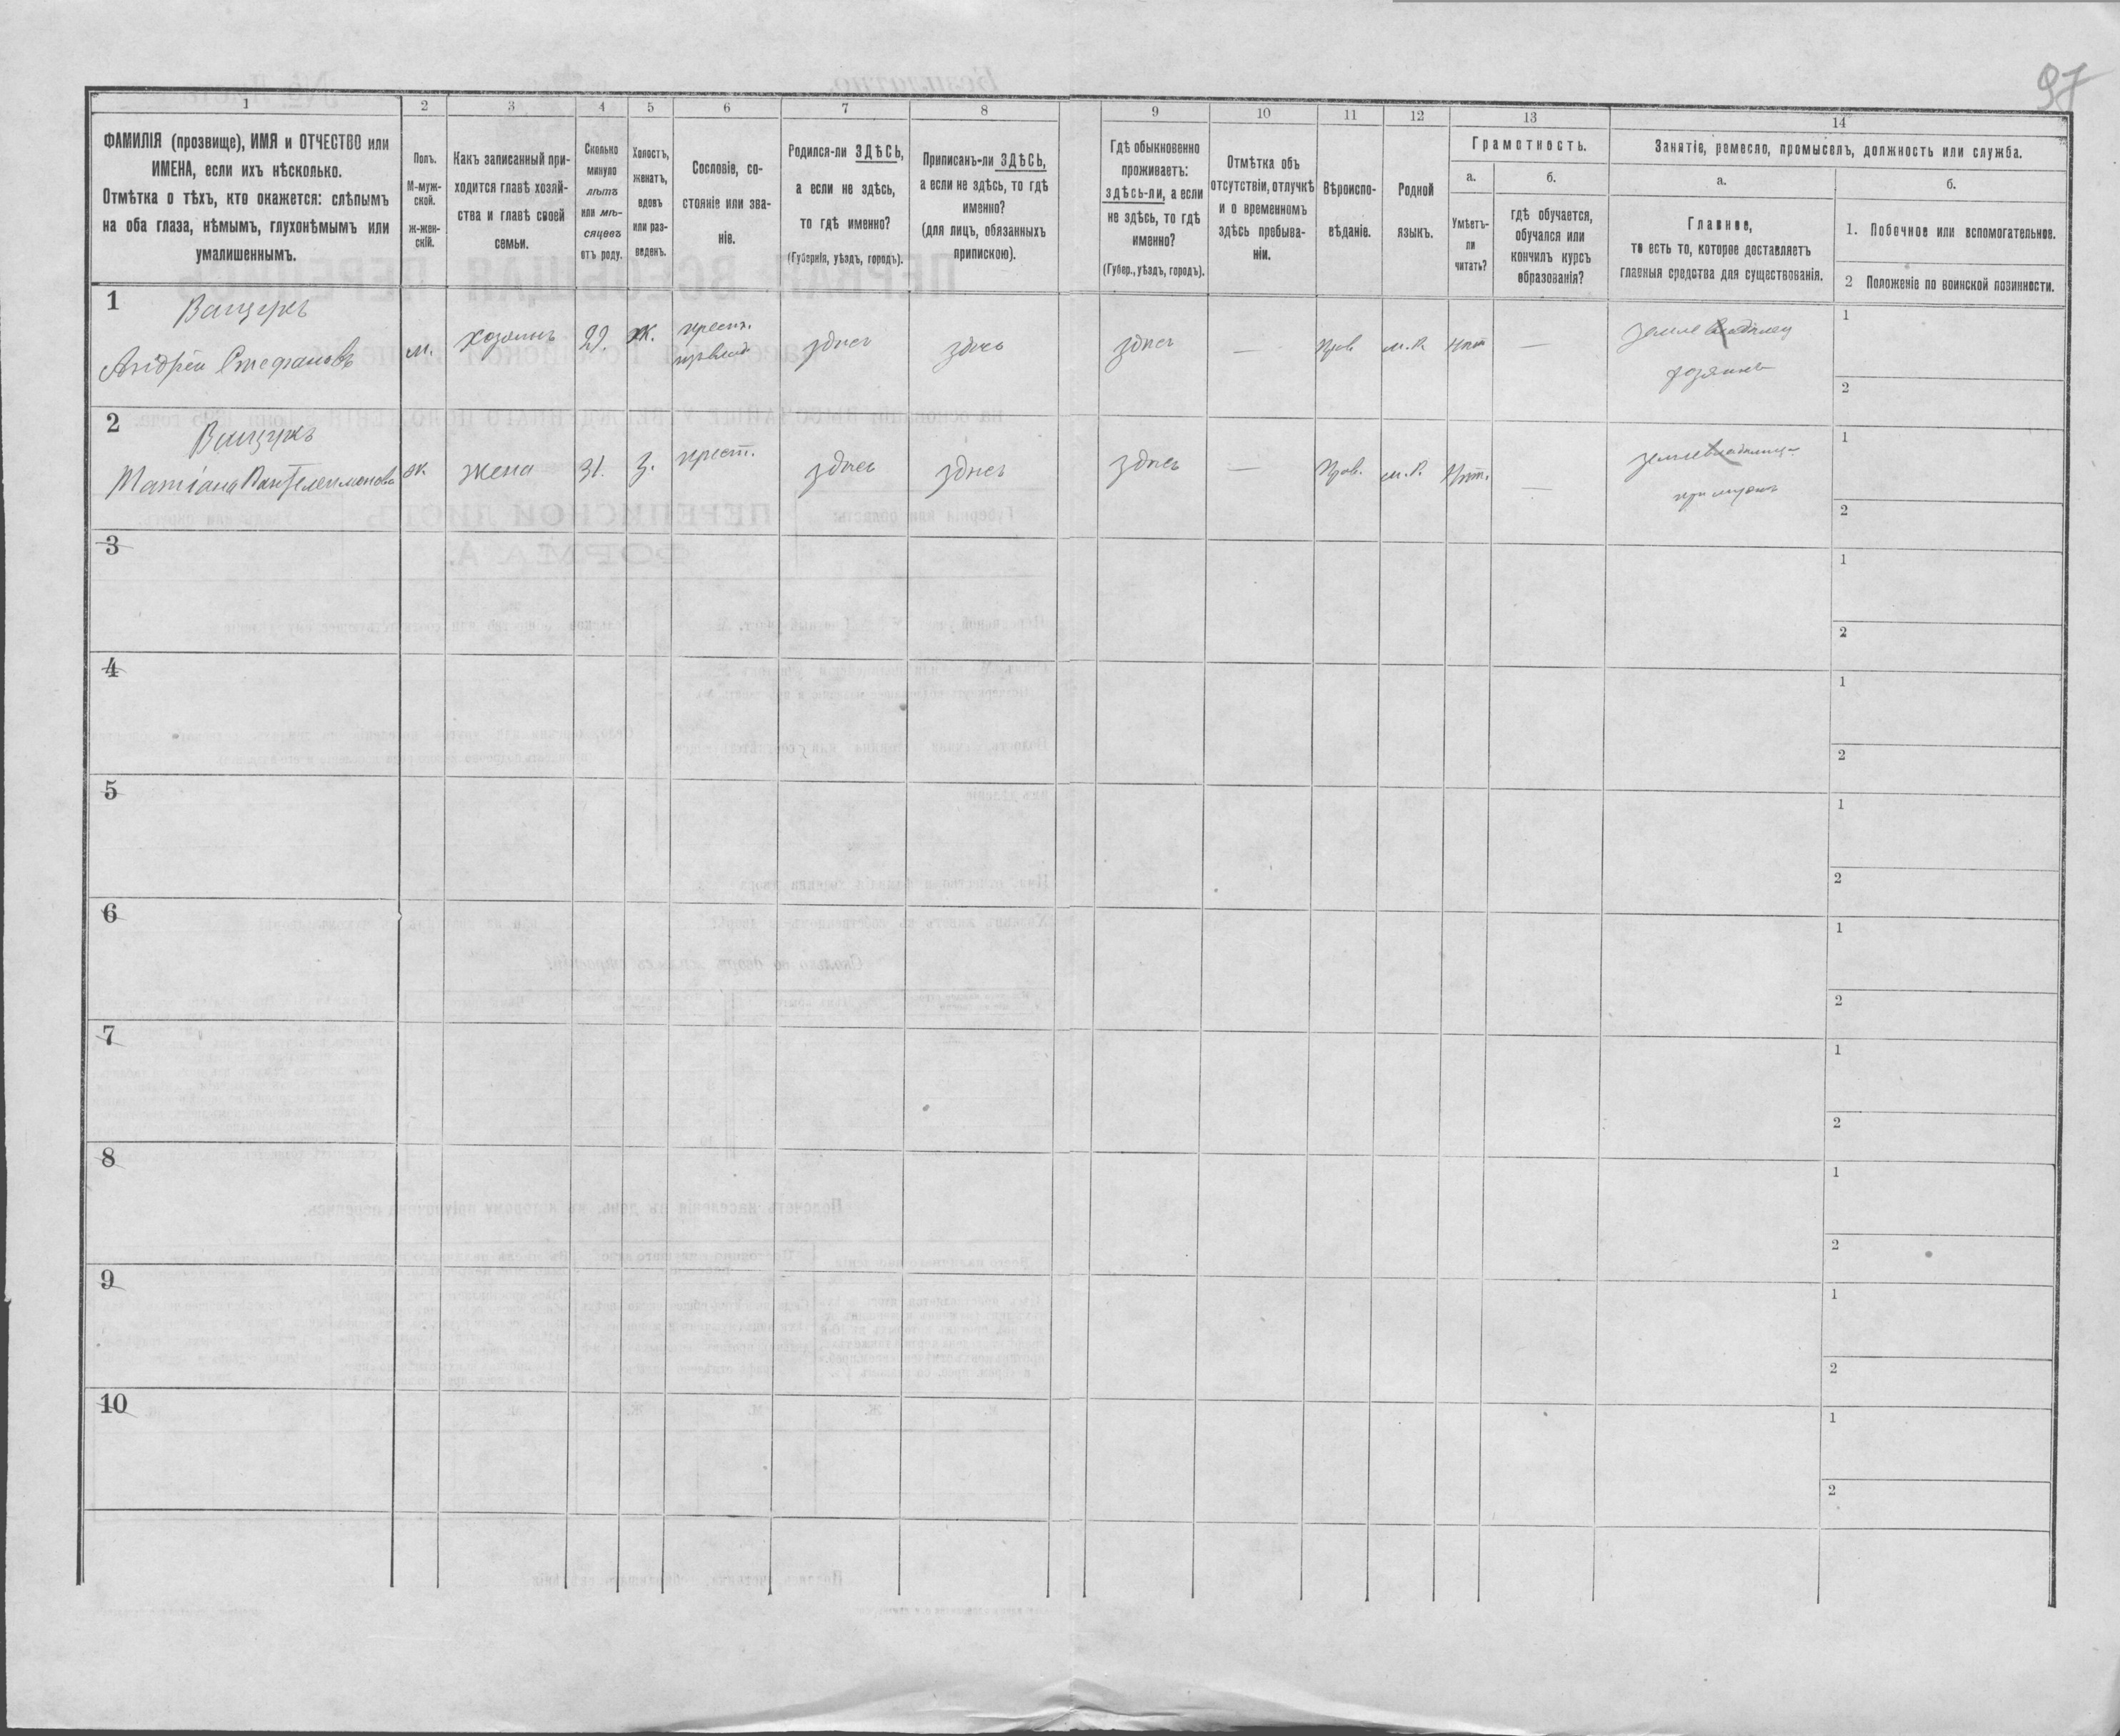 97
1
2
3
4
5
6
7
8
9
10
11
12
13
14
ФАМИЛІЯ (прозвище), ИМЯ и ОТЧЕСТВО или
ИМЕНА, если ихъ нѣсколько.
Отмѣтка о тѣхъ, кто окажется: слѣпымъ
на оба глаза, нѣмымъ, глухонѣмымъ или
умалишеннымъ.
Полъ.
М-муж-
ской.
ж-жен-
скій.
Какъ записанный при-
ходится главѣ хозяй-
ства и главѣ своей
семьи.
Сколько
минуло
лѣтъ
или мѣ-
сяцевъ
отъ роду.
Холостъ,
женатъ,
вдовъ
или раз-
веденъ.
Сословіе, со-
стояніе или зва-
ніе.
Родился-ли ЗДѢСЬ,
а если не здѣсь,
то гдѣ именно?
(Губернія, уѣздъ, городъ).
Приписанъ-ли ЗДѢСЬ,
а если не здѣсь, то гдѣ
именно?
(для лицъ, обязанныхъ
припискою).
Гдѣ обыкновенно
проживаетъ:
здѣсь-ли, а если
не здѣсь, то гдѣ
именно?
(Губер., уѣздъ, городъ).
Отмѣтка объ
отсутствіи, отлучкѣ
и о временномъ
здѣсь пребыва-
ніи.
Вѣроиспо-
вѣданіе.
Родной
языкъ.
Грамотность.
а.
Умѣетъ-
ли
читать?
б.
гдѣ обучается,
обучался или
кончилъ курсъ
образованія?
Занятіе, ремесло, промыселъ, должность или служба.
а.
Главное,
то есть то, которое доставляетъ
главныя средства для существованія.
б.
1. Побочное или вспомогательное.
2 Положеніе по воинской повинности.
1
Ващукъ
Андрей Стефановъ
м.
хозяинъ
29.
ж.
здѣсь
здѣсь
здѣсь
—
Прав
м.р.
Нѣт
—
землевладѣлец
хозяинъ
1
2
2
Ващукъ
Матіана Пантелеимонова
ж
жена
31.
з.
крест.
здѣсь
здѣсь
здѣсь
—
Прав.
м.р.
Нѣт.
—
при мужѣ
1
2
3
1
2
4
1
2
5
1
2
6
1
2
7
1
2
8
1
2
9
1
2
10
1
2